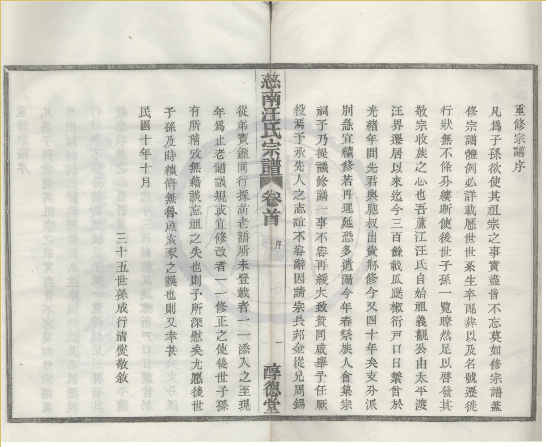 重修宗譜序
凡爲子孫欲使其祖宗之事實盡皆不忘莫如修宗譜蓋
修宗譜體例必詳載歷世世系生卒配葬以及名號遷徙
行狀無不條分縷晰使後世子孫一覽瞭然足以啓發其
敬宗收族之心也吾蘆江汪氏自始祖義觀公由太平渡
汪界遷居以來迄今三百餘載瓜瓞椒衍戶口日繁曾於
光緒年間先君與胞叔出貲修今又四十年矣支分派
別急宜續修若再遲延恐多遺漏今年春祭族人會集宗
祠予乃提議修譜一事不容再緩大致贊同咸舉予任厥
役焉予承先人之志誼不容辭因請宗長邦金從兄周錫
慈南汪氏宗譜 卷首 序 一 敦德堂
從弟賚鼎同行採訪老譜所未登載者一一添入之至現
年爲止老譜議規或宜修改者一一修正之使後世子孫
有所稽攷無譜談忘祖之失也則予所深慰矣尤愿後世
子孫及時續修無魯魚亥豕之誤也則又幸甚
民國十年十月
三十五世孫成行清燮敬敘